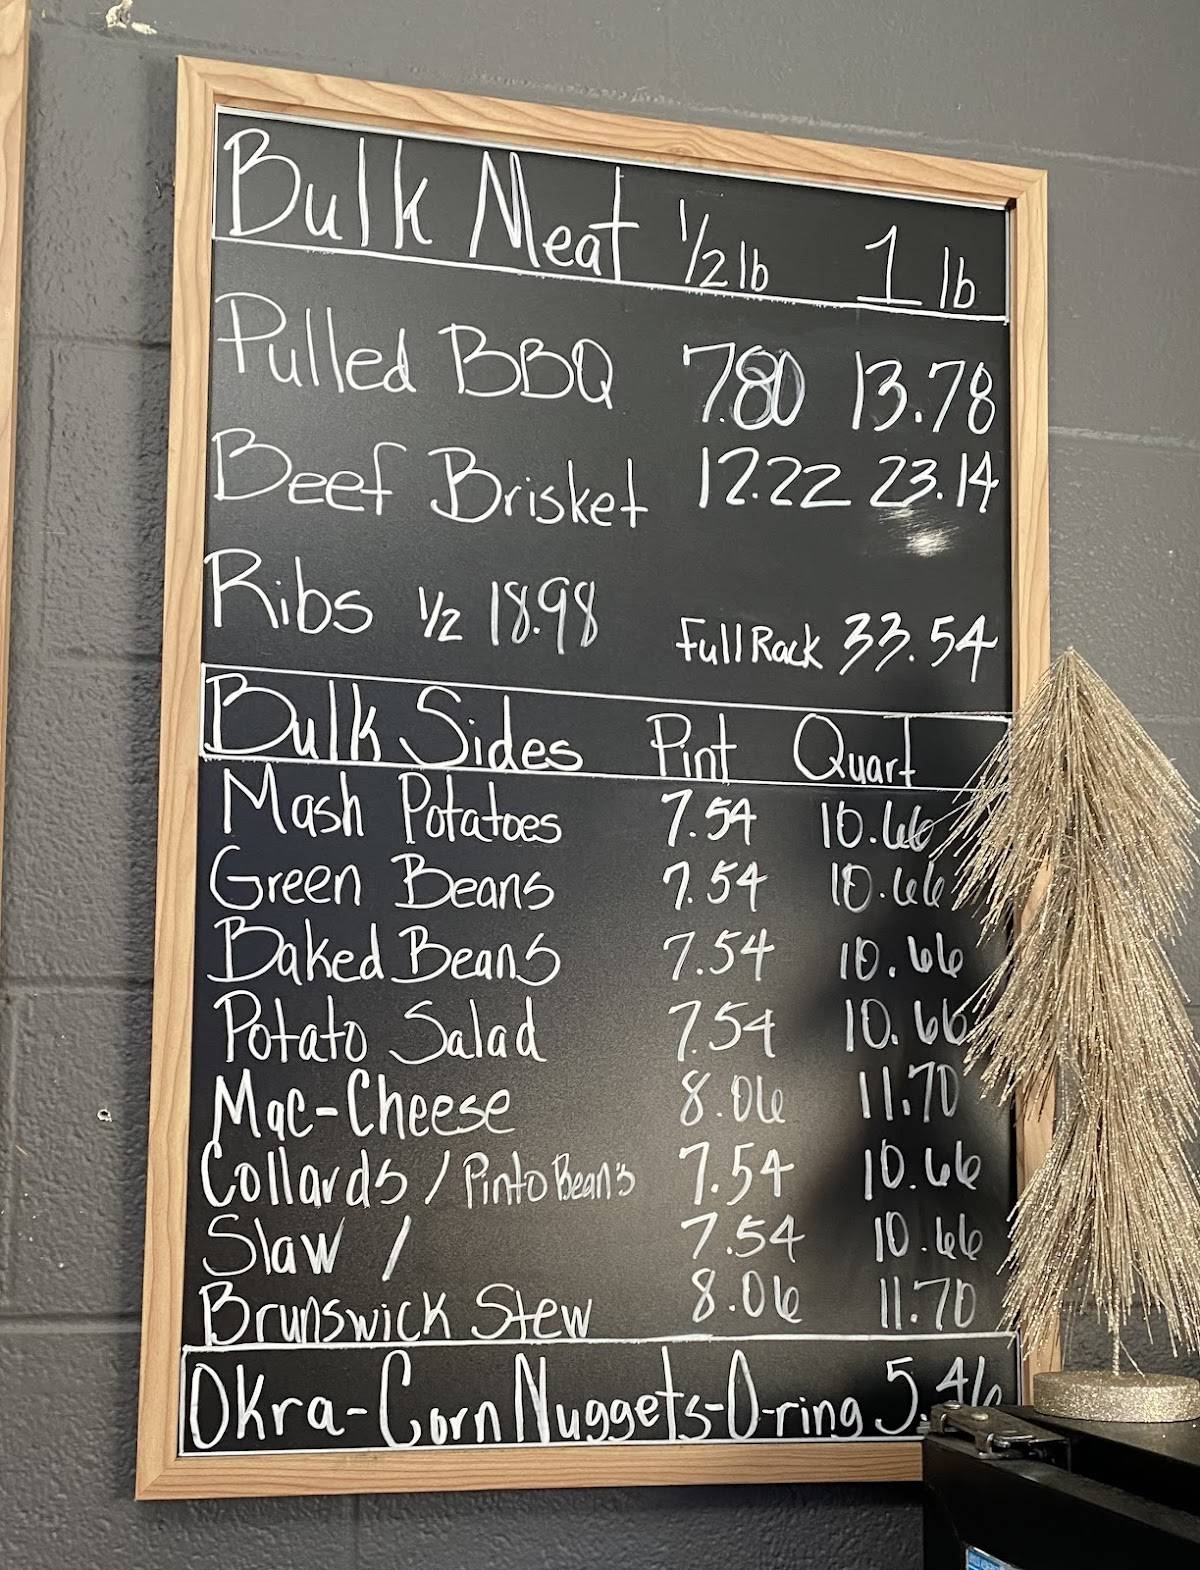 Bulk Meat 1/2 lb 1 lb
Pulled BBQ 7.80 13.78
Beef Brisket 12.22 23.14
Ribs 1/2 18.98 Full Rack 33.54
Bulk Sides Pint Quart
Mash Potatoes 7.54 10.66
Green Beans 7.54 10.66
Baked Beans 7.54 10.66
Potato Salad 7.54 10.66
Mac-Cheese 8.06 11.70
Collards / Pinto Bean's 7.54 10.66
Slaw / 7.54 10.66
Brunswick Stew 8.06 11.70
Okra-Corn Nuggets-O-ring 5.46